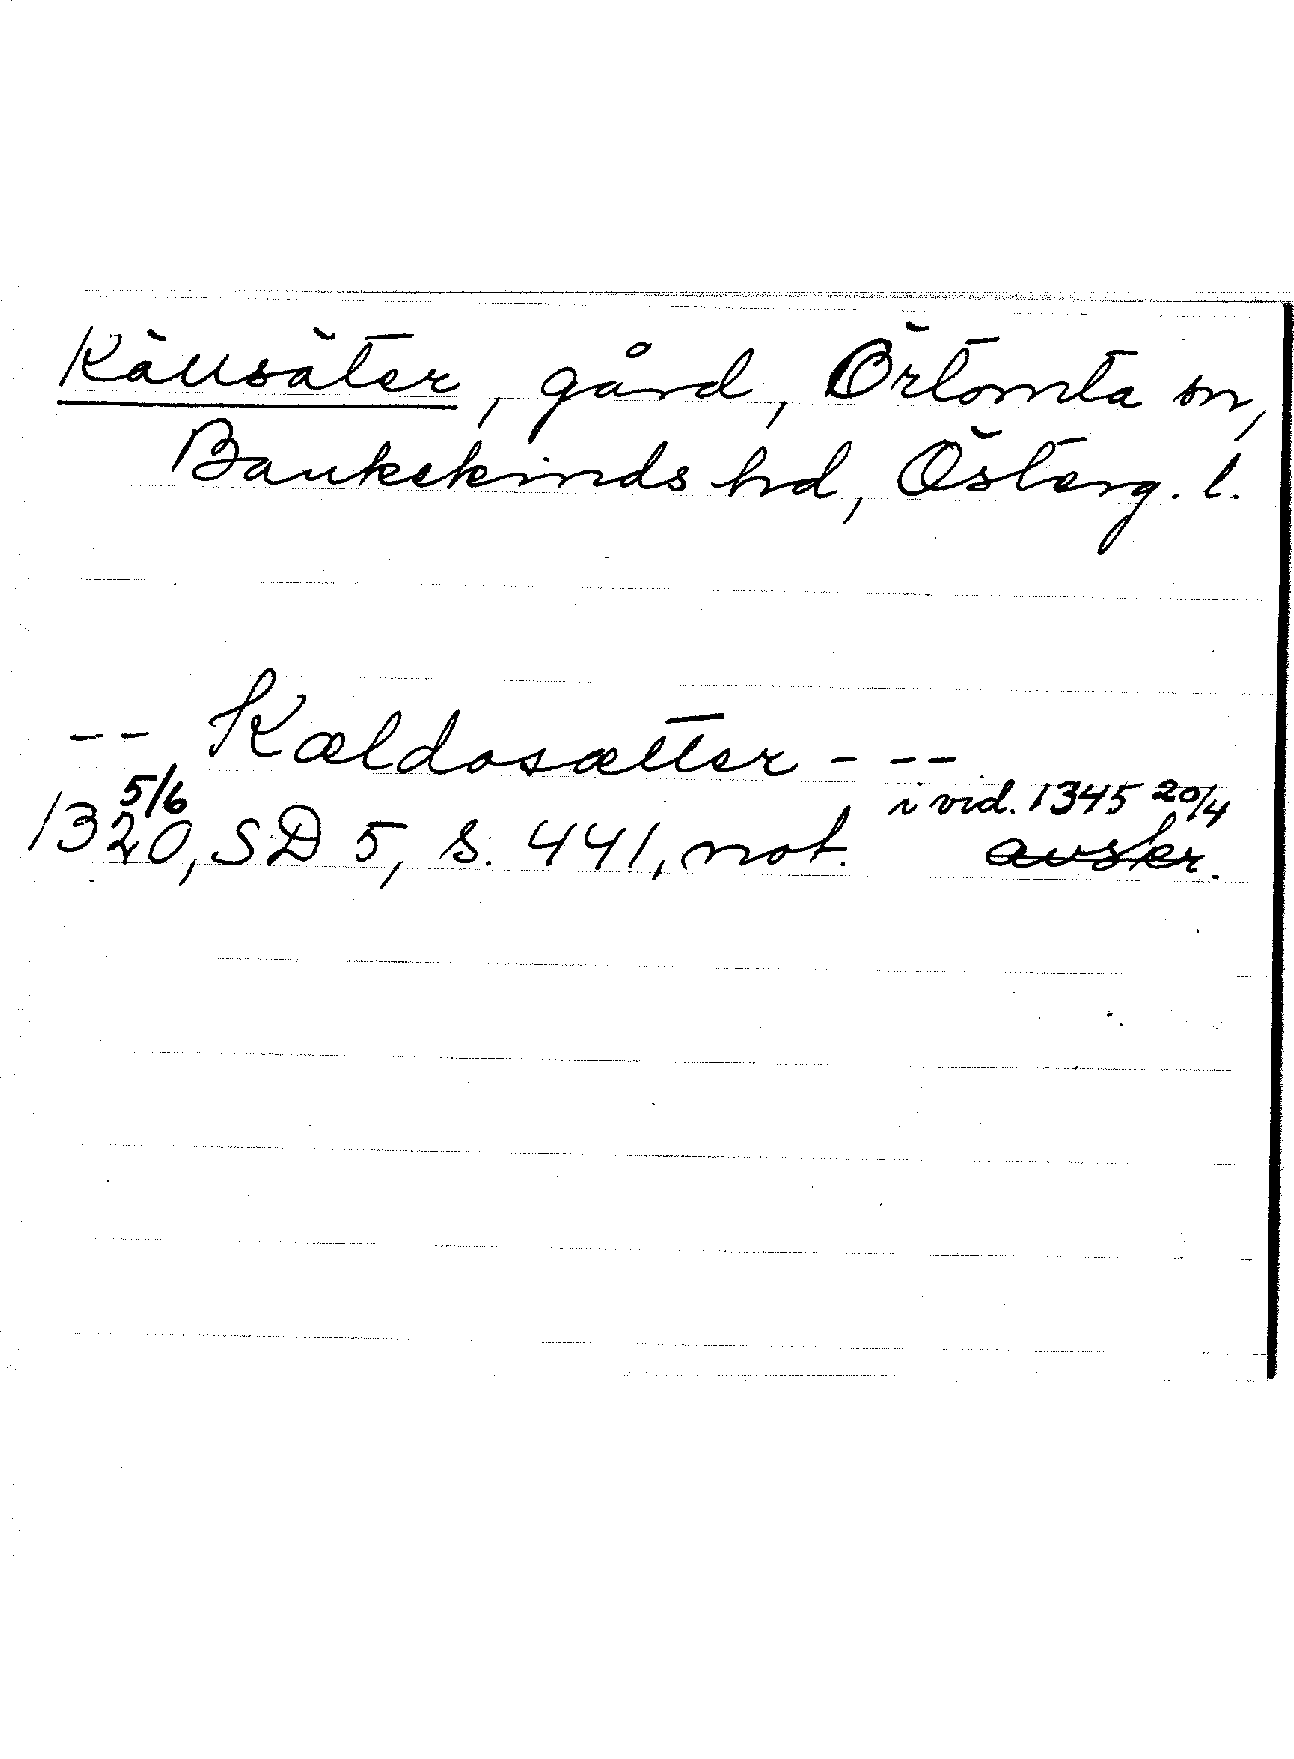 Källsäter, gård, Örtomta sn,
Bankekinds hd, Österg. l.
-- Kældosætter ---
1320 5/6, SD 5, s. 441, not. i vid. 1345 20/4
avskr.